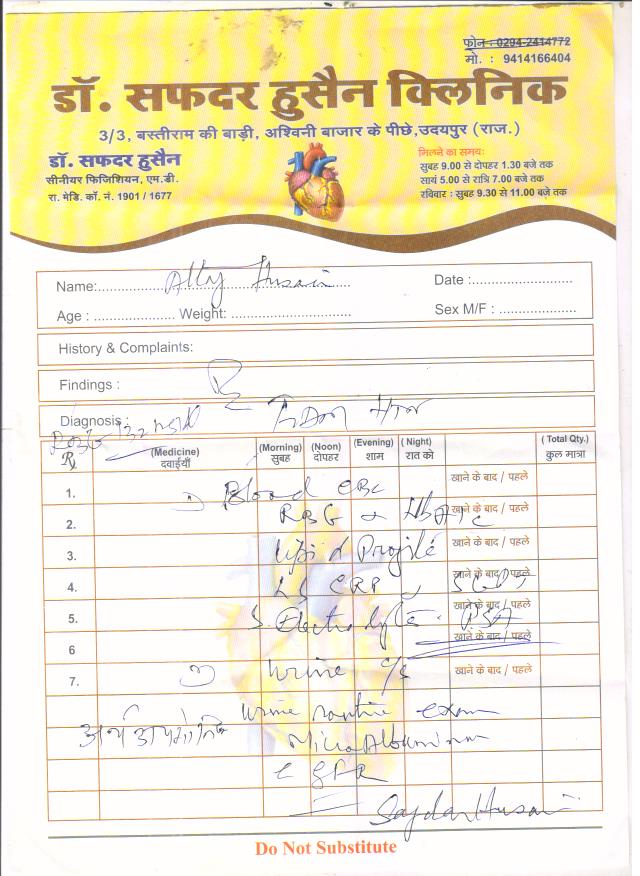 फोन : 0294-2414772
मो. : 9414166404
डॉ. सफदर हुसैन क्लिनिक
3/3, बस्तीराम की बाड़ी, अश्विनी बाजार के पीछे,उदयपुर (राज.)
डॉ. सफदर हुसैन
सीनीयर फिजिशियन, एम.डी.
रा. मेडि. कॉं. नं. 1901 / 1677
मिलने का समय:
सुबह 9.00 से दोपहर 1.30 बजे तक
सायं 5.00 से रात्रि 7.00 बजे तक
रविवार : सुबह 9.30 से 11.00 बजे तक
Name: Husain Date :
Age : Weight: Sex M/F :
History & Complaints:
Findings :
Diagnosis :
RBG
Rx (Medicine) (Morning) (Noon) (Evening) (Night) (Total Qty.)
दवाईयाँ सुबह दोपहर शाम रात को कुल मात्रा
1. Blood CBC खाने के बाद / पहले
2. RBG HbA1c खाने के बाद / पहले
3. Lipid Profile खाने के बाद / पहले
4. CRP खाने के बाद / पहले
5. S. Electrolyte PSA खाने के बाद / पहले
6 खाने के बाद / पहले
7. Urine c/s खाने के बाद / पहले
Urine routine exam
Microalbumin
eGFR
Safdar Husain
Do Not Substitute